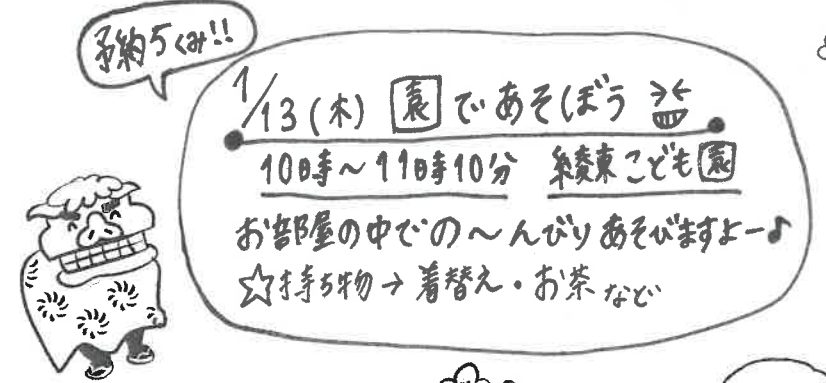 予約5くみ!!
1/13(木) 園であそぼう
10時〜11時10分 綾東こども園
お部屋の中での〜んびりあそびますよー♪
☆持ち物→着替え・お茶など